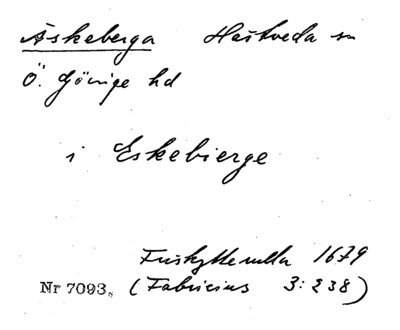 Äskeberga Hästveda sn
Ö. Göinge hd
i Eskebierge
Friskytterulla 1679
Nr 7093. (Fabricius 3:238)